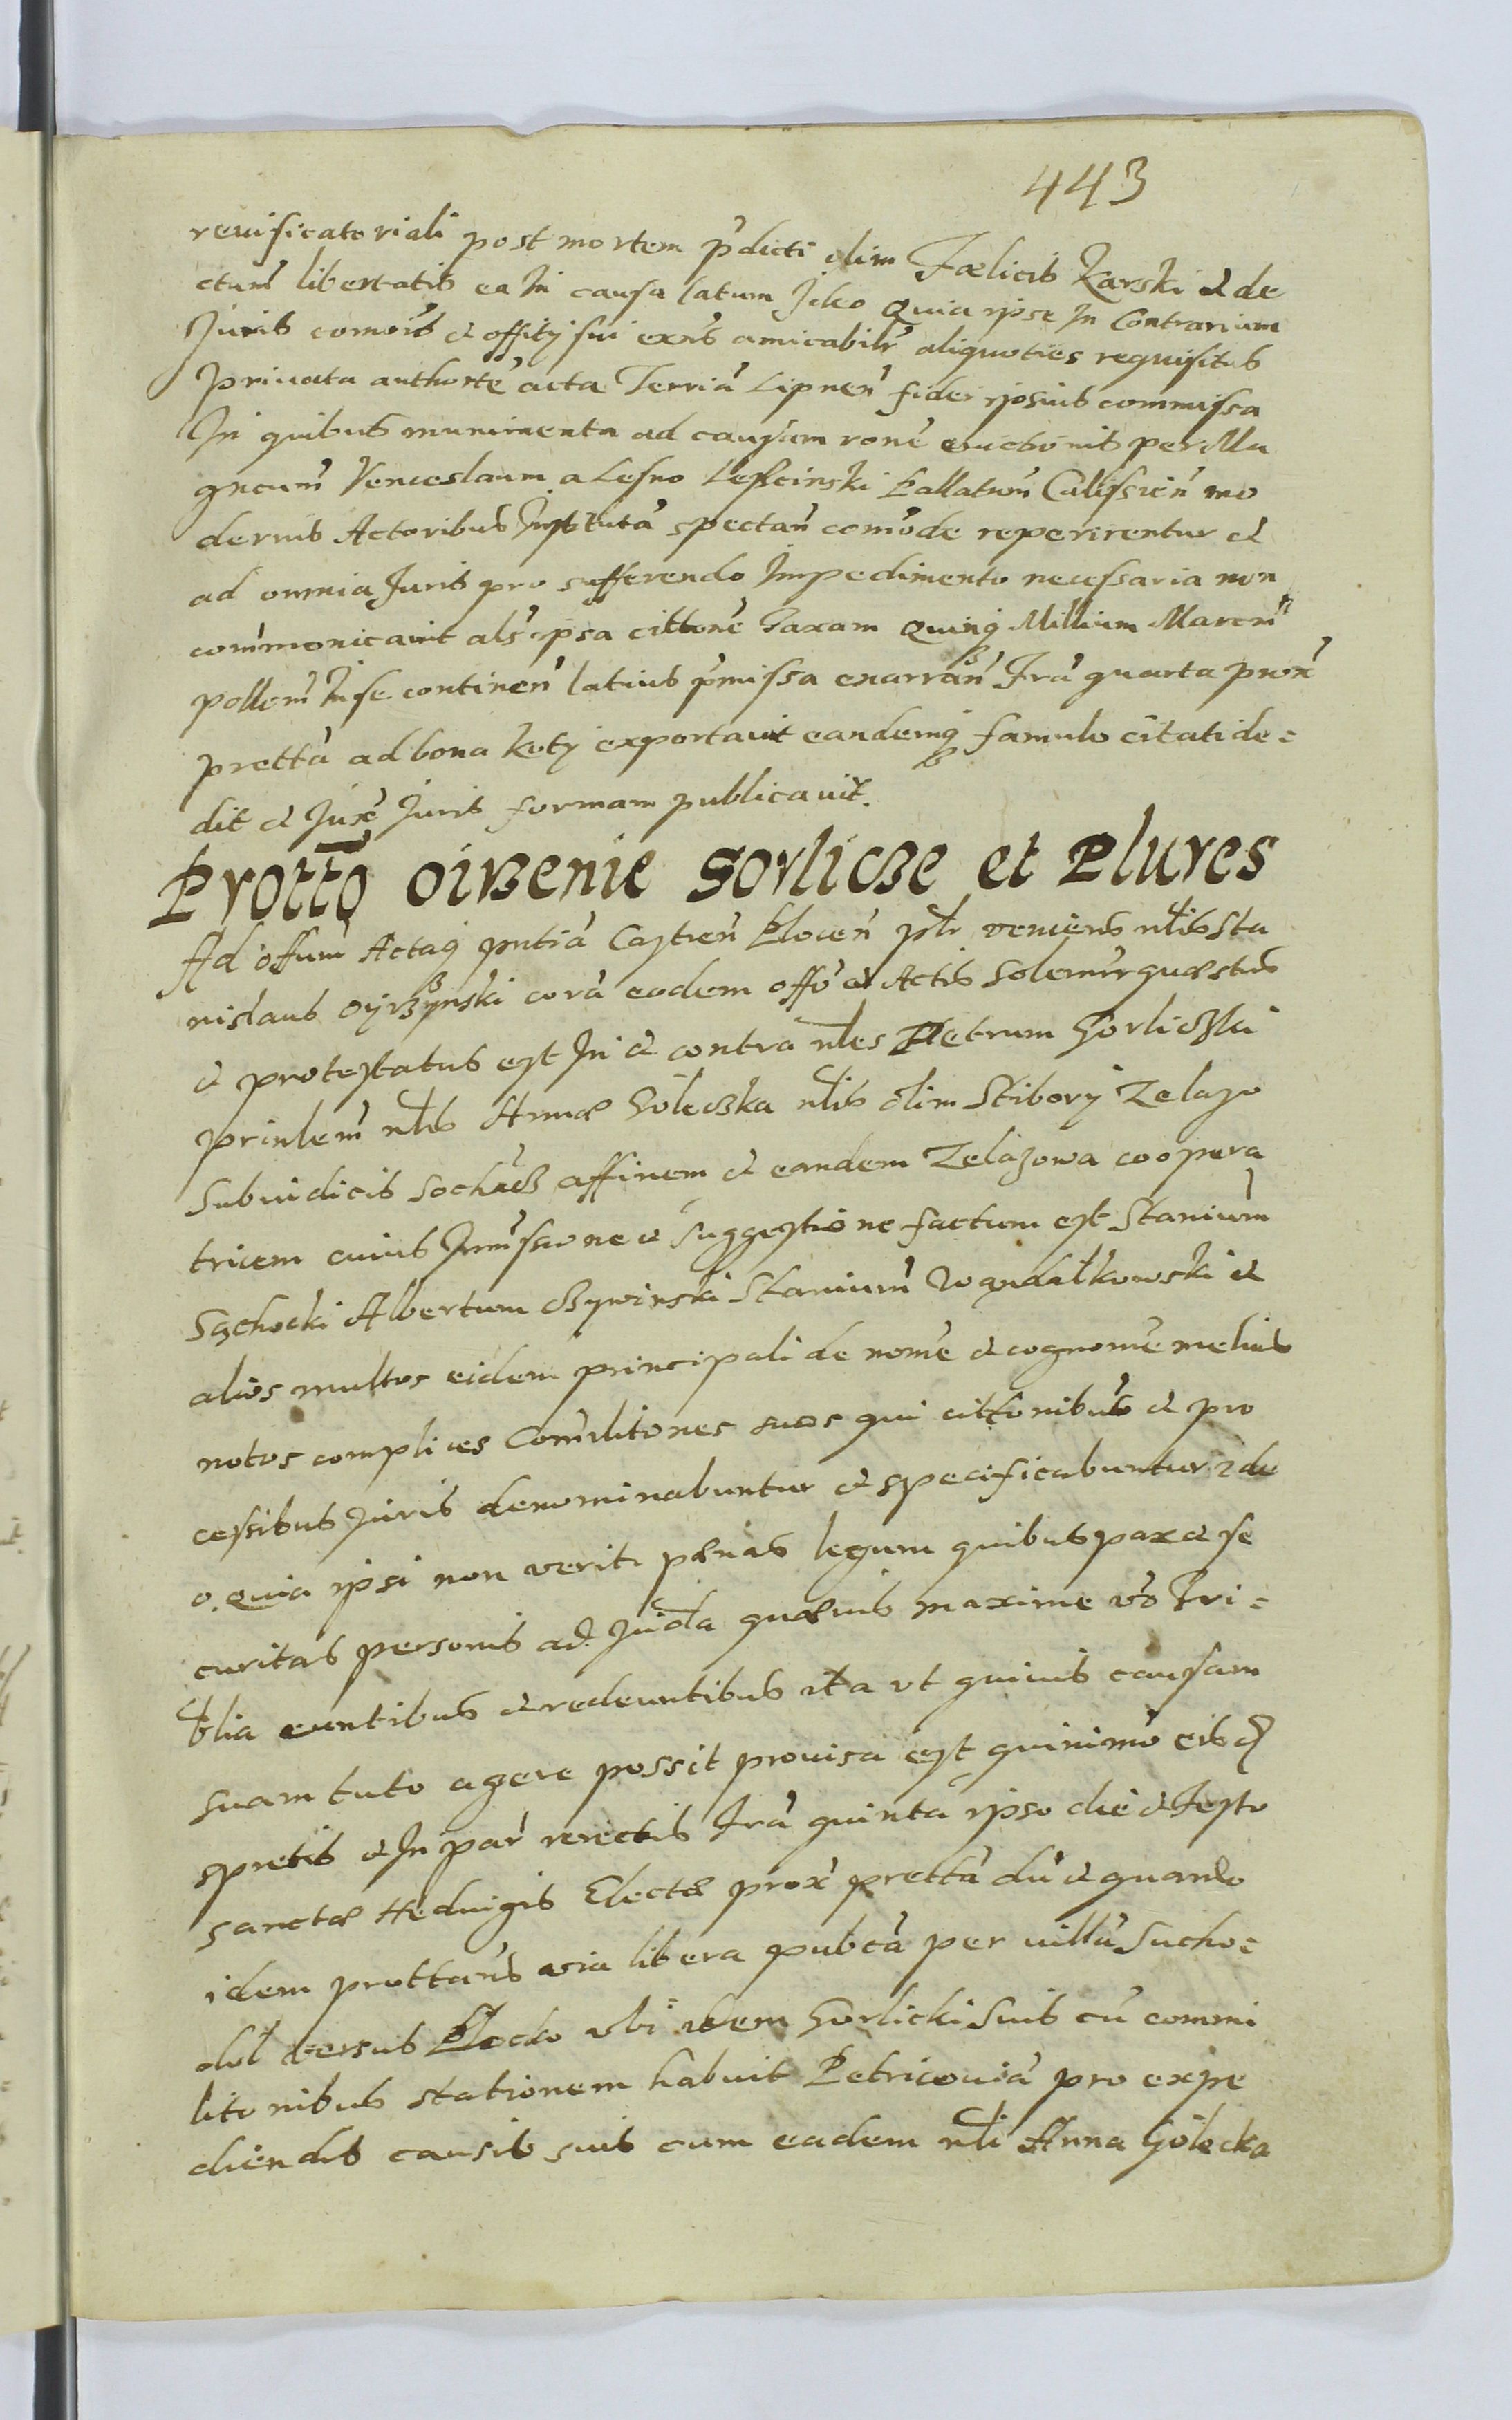 443
reuificatoriali post mortem pdicti olim Fælicis Karski & de
ctum libertatis ea In causa latum Ideo Quia ipse In Contrarium
Juris comois & offitij sui exns amicabilr aliquoties requisitus
Priuata authorte acta Terria Lipnen fidei ipsius commissa
In quibus munimenta ad causam rone euictionis per Ma
gncum Venceslaum a Lesno Lesscinski Pallatnum Calissien mo
dernis Actoribus Instituta spectan comode reperirentur &
ad omnia Juris pro sufferendo Impedimento necessaria non
communicauit als ipsa cittone Taxam Quinq Millium Marcm
pollem In se continen latius pmissa enarran Fra quarta prox
pretta ad bona Koty exportauit eandemq famulo citati de=
dit & Juxe Juris formam publicauit.
Protto oirzenie Gorlicze et Plures
Ad offum Actaq pntia Castren Plocen plr veniens nlis Sta
nislaus Oyrzynski cora eodem offo & Actis solemnr quæstus
& protestatus est In & contra nles Petrum Gorliczki
Prinlem nlis Annæ Goleczka nlis olim Stibory Zelazo
Subiudicis Sochacz affinem & eandem Zelazowa coopera
tricem cuius Immissione & suggestione factum est Stanium
Sachocki Albertum Czywinski Stanium Wandalkowski &
alios multos eidem principali de nome & cognome melius
notos complices Comilitones suos qui cittonibus & pro
cessibus Juris denominabuntur & specificabuntur ide
o. Quia ipsi non veriti pænas legum quibus pax & se
curitas personis ad Judia quæuis maxime vo Tri=
blia euntibus & redeuntibus ita ut quiuis causam
suam tuto agere possit prouisa est quinimo eisd
spretis & In par reiectis Fra quinta ipso die & festo
sanctæ Heduigis Electæ prox pretta du & quando
idem prottans via libera pubca per villa Sucho=
dol versus Plocko ubi idem Gorlicki Suis cu commi
litonibus stationem habuit Petricouia pro expe
diendis causis suis cum eadem nli Anna Golecka